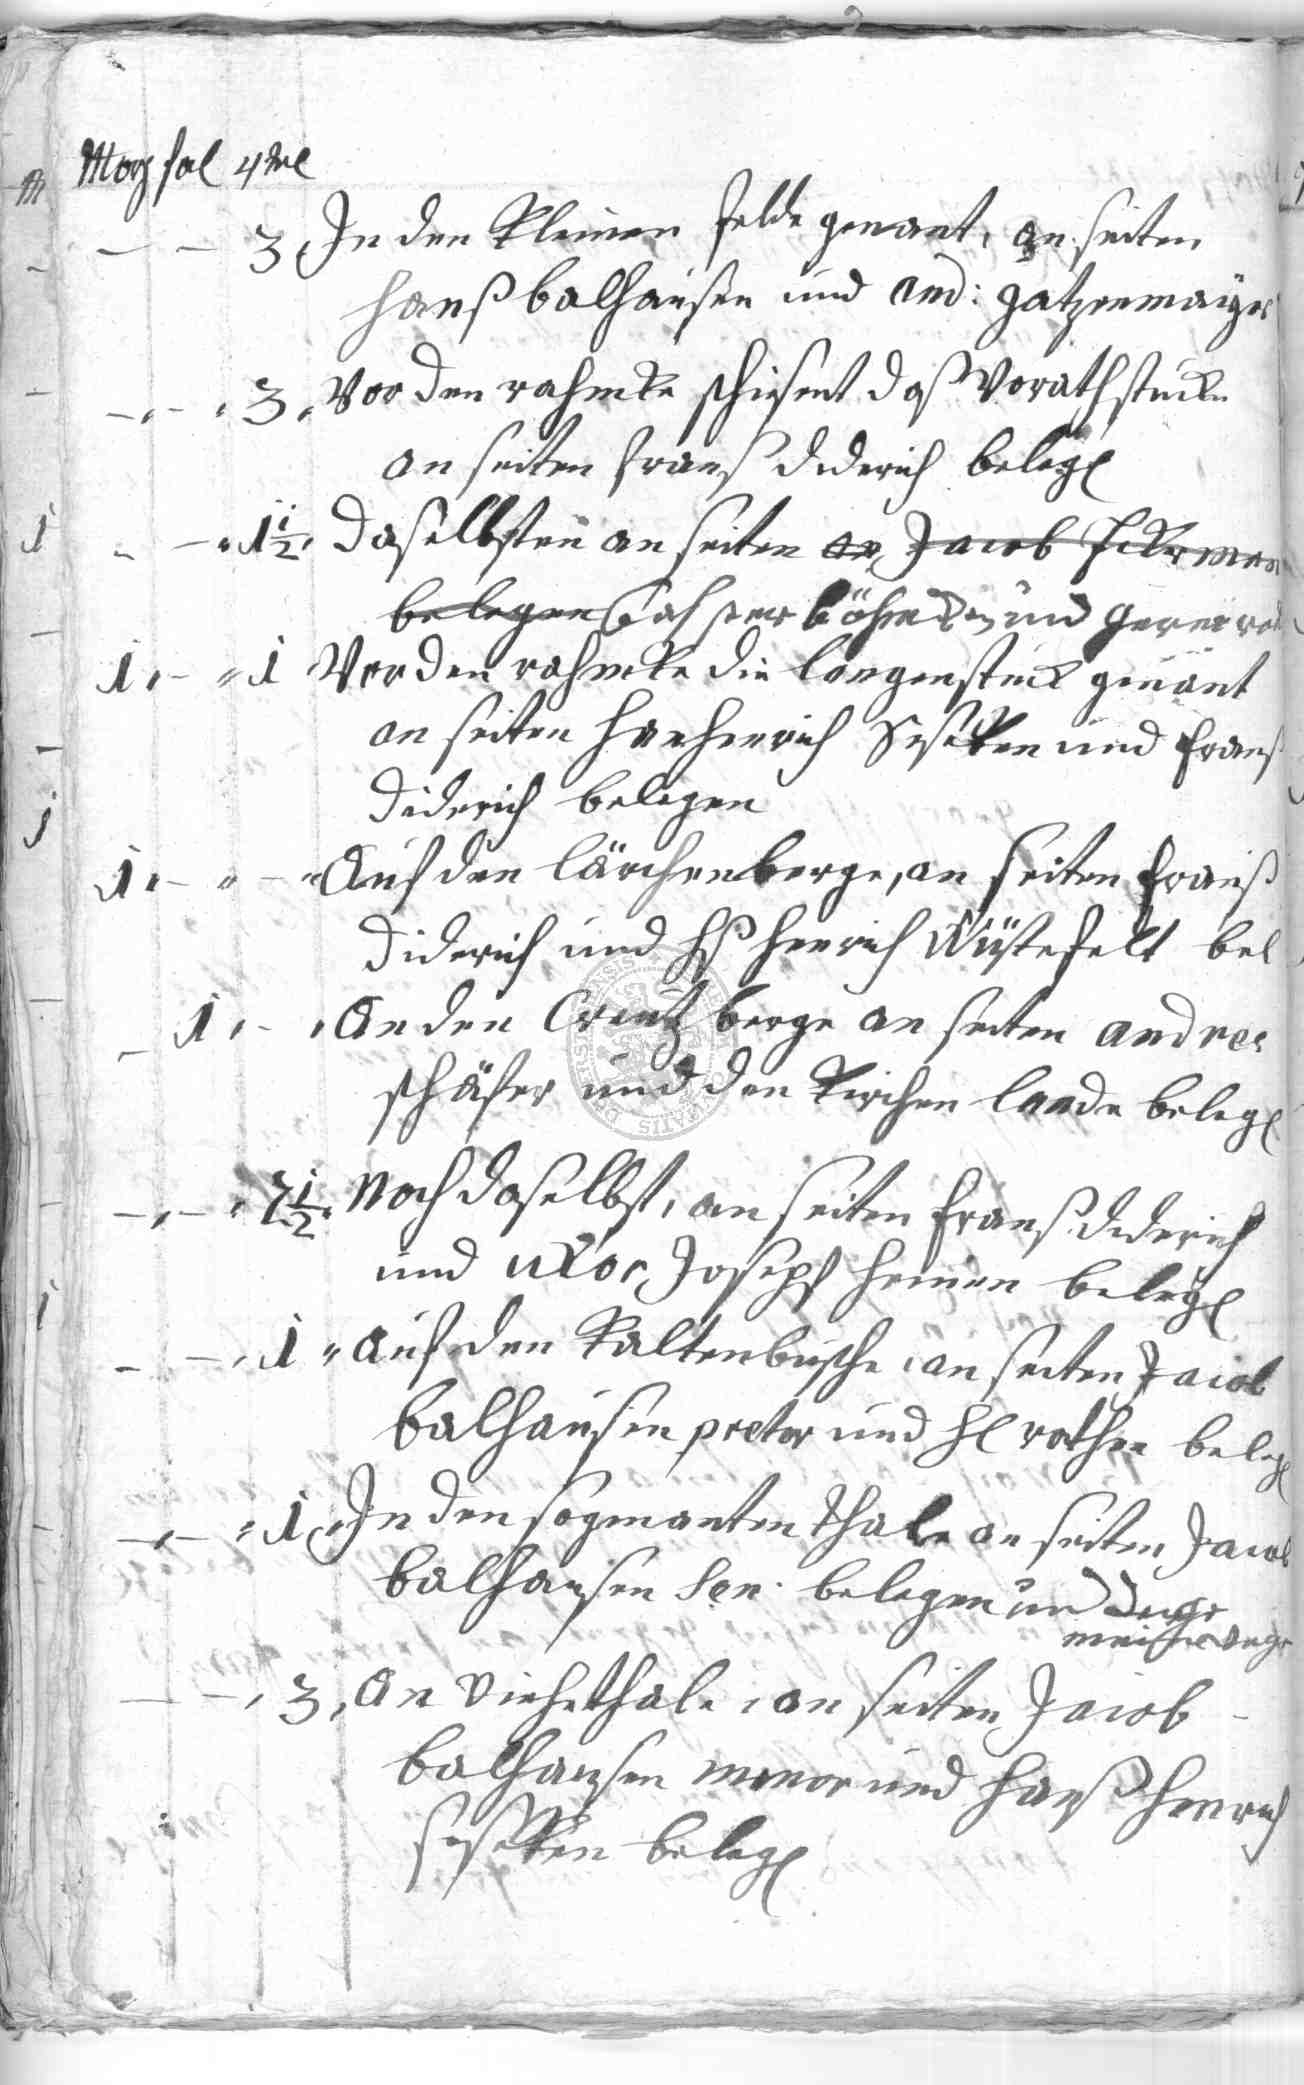 Morg hal 4tel
— — 3, In den Kleinen felde genant, an seiten
hanß balhausen und and: gatzenmaijer
— — 3, Vor den rahmke schiesent daß Vorathstücke
an seiten franß diderich beleg
— — 1½ daselbsten an seiten an Jacob
belegen Casper böhme und
1 — 1 Vor den rahmke die langenstück genant
an seiten hanhenrich Seseken und franß
diderich belegen
1 — — Auf den lärchenberge, an seiten franß
diderich und hß henrich Wüstefelt bel
— 1 — An den Creutz berge an seiten andres
schäfer und den Kirchen lande beleg
— — 2½ Noch daselbst, an seiten franß diderich
und uxor Joseph heinen beleg
— — 1 auf den Kaltenbusche an seiten Jacob
balhausen pretor und hl rothen beleg
— — 1 In den sogenanten thale an seiten Jacob
balhausen Sen: belegen und
— — 3, An Viehethale an seiten Jacob
balhausen minor und hanß henrich
seseken beleg
DER SIGILLUM